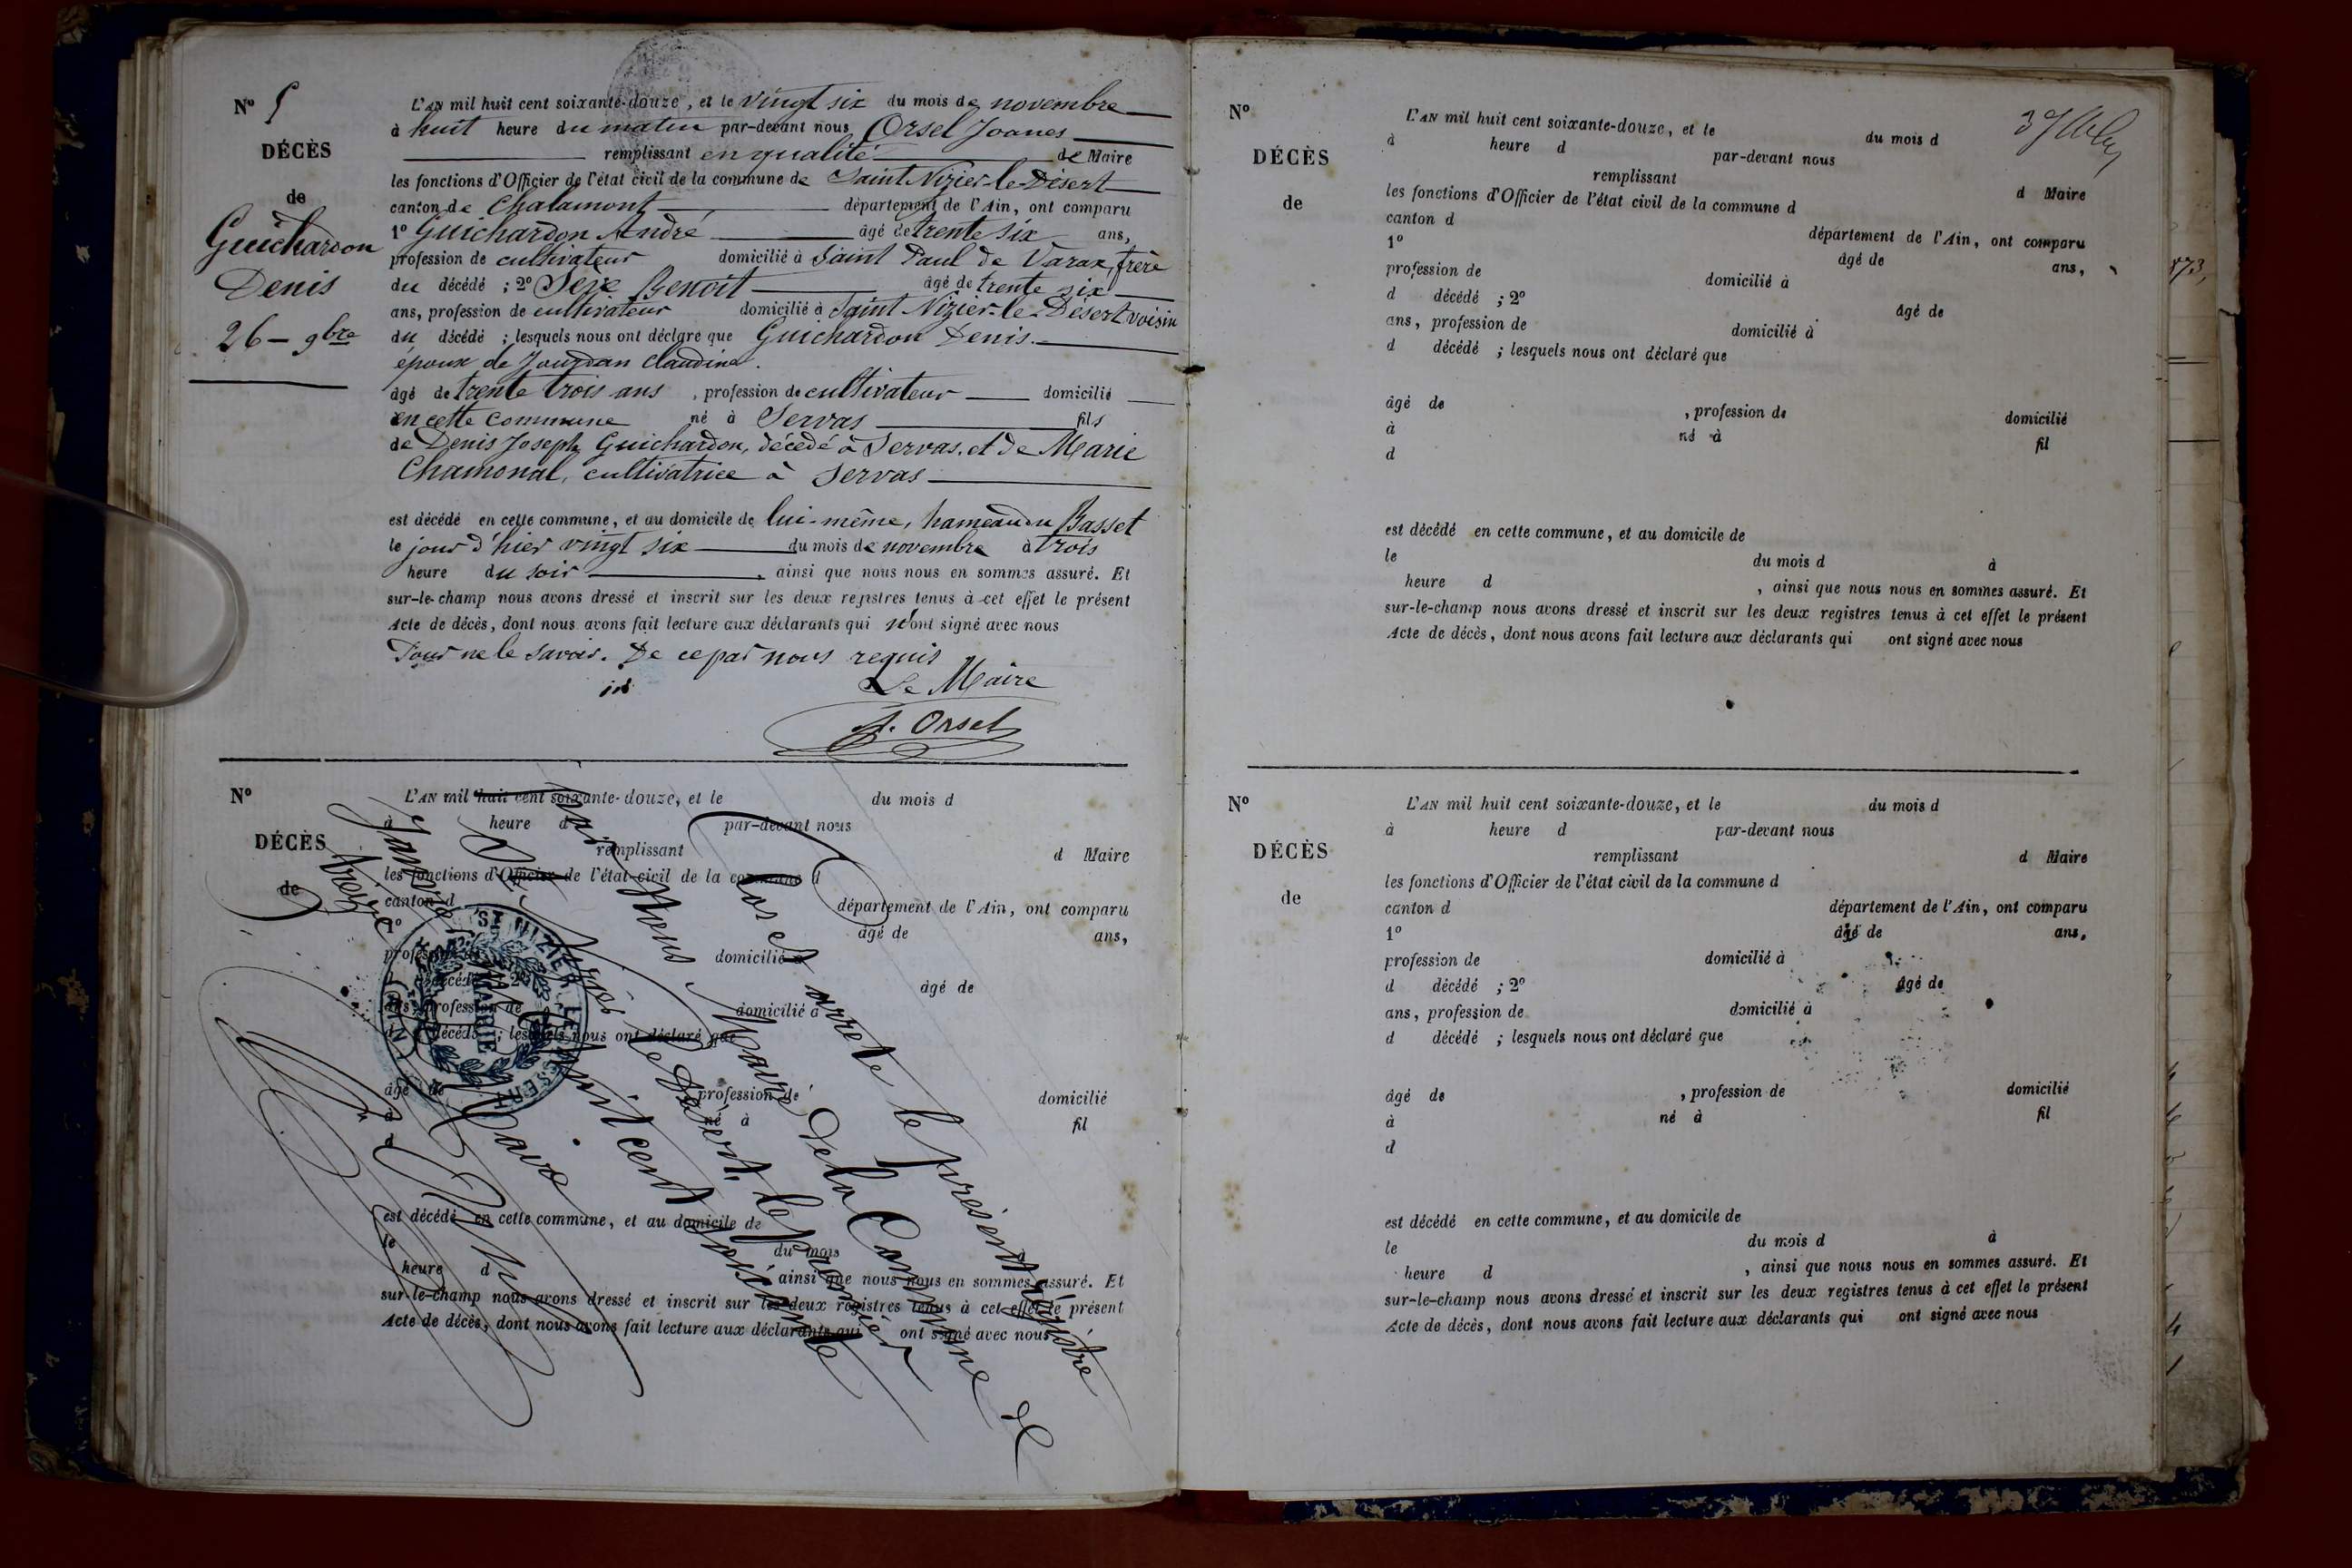 N° 5
DÉCÈS
de
Guichardon
Denis
26 - 9bre
L'AN mil huit cent soixante-douze, et le vingt six du mois de novembre
à huit heure du matin par-devant nous Orsel Joanes
remplissant en qualité de Maire
les fonctions d'Officier de l'état civil de la commune de Saint Nizier-le-Désert
canton de Chalamont département de l'Ain, ont comparu
1° Guichardon André âgé de trente six ans,
profession de cultivateur domicilié à Saint Paul de Varax, frère
du décédé ; 2° Sève Benoit âgé de trente six
ans, profession de cultivateur domicilié à Saint Nizier-le-Désert voisin
du décédé ; lesquels nous ont déclaré que Guichardon Denis.
époux de Jourdan Claudine.
âgé de trente trois ans, profession de cultivateur domicilié
en cette commune né à Servas fils
de Denis Joseph Guichardon, décédé à Servas, et de Marie
Chamonal, cultivatrice à Servas
est décédé en cette commune, et au domicile de lui-même, hameau du Basset
le jour d'hier vingt six du mois de novembre à trois
heure du soir, ainsi que nous nous en sommes assuré. Et
sur-le-champ nous avons dressé et inscrit sur les deux registres tenus à cet effet le présent
Acte de décès, dont nous avons fait lecture aux déclarants qui n'ont signé avec nous
Pour ne le savoir. De ce par nous requis
Le Maire
J. Orsel
N°
DÉCÈS
de
L'AN mil huit cent soixante-douze, et le du mois d
à heure d par-devant nous
remplissant d Maire
les fonctions d'Officier de l'état civil de la commune d
canton d département de l'Ain, ont comparu
1° âgé de ans,
profession de domicilié à
d décédé ; 2° âgé de
ans, profession de domicilié à
d décédé ; lesquels nous ont déclaré que
âgé de profession de domicilié
à né à fil
d
est décédé en cette commune, et au domicile de
le du mois à
heure d ainsi que nous nous en sommes assuré. Et
sur-le-champ nous avons dressé et inscrit sur les deux registres tenus à cet effet le présent
Acte de décès, dont nous avons fait lecture aux déclarants qui ont signé avec nous
Clos et arrêté le présent régistre
par Nous Maire de la Commune de
St Nizier le Désert, le premier
Janvier mil huit cent soixante
treize
Le Maire
J. Orsel
ST NIZIER LE DESERT
MAIRIE
(AIN)
N°
DÉCÈS
de
L'AN mil huit cent soixante-douze, et le du mois d
à heure d par-devant nous
remplissant d Maire
les fonctions d'Officier de l'état civil de la commune d
canton d département de l'Ain, ont comparu
1° âgé de ans,
profession de domicilié à
d décédé ; 2° âgé de
ans, profession de domicilié à
d décédé ; lesquels nous ont déclaré que
âgé de , profession de domicilié
à né à fil
d
est décédé en cette commune, et au domicile de
le du mois d à
heure d , ainsi que nous nous en sommes assuré. Et
sur-le-champ nous avons dressé et inscrit sur les deux registres tenus à cet effet le présent
Acte de décès, dont nous avons fait lecture aux déclarants qui ont signé avec nous
N°
DÉCÈS
de
L'AN mil huit cent soixante-douze, et le du mois d
à heure d par-devant nous
remplissant d Maire
les fonctions d'Officier de l'état civil de la commune d
canton d département de l'Ain, ont comparu
1° âgé de ans,
profession de domicilié à
d décédé ; 2° âgé de
ans, profession de domicilié à
d décédé ; lesquels nous ont déclaré que
âgé de , profession de domicilié
à né à fil
d
est décédé en cette commune, et au domicile de
le du mois d à
heure d , ainsi que nous nous en sommes assuré. Et
sur-le-champ nous avons dressé et inscrit sur les deux registres tenus à cet effet le présent
Acte de décès, dont nous avons fait lecture aux déclarants qui ont signé avec nous